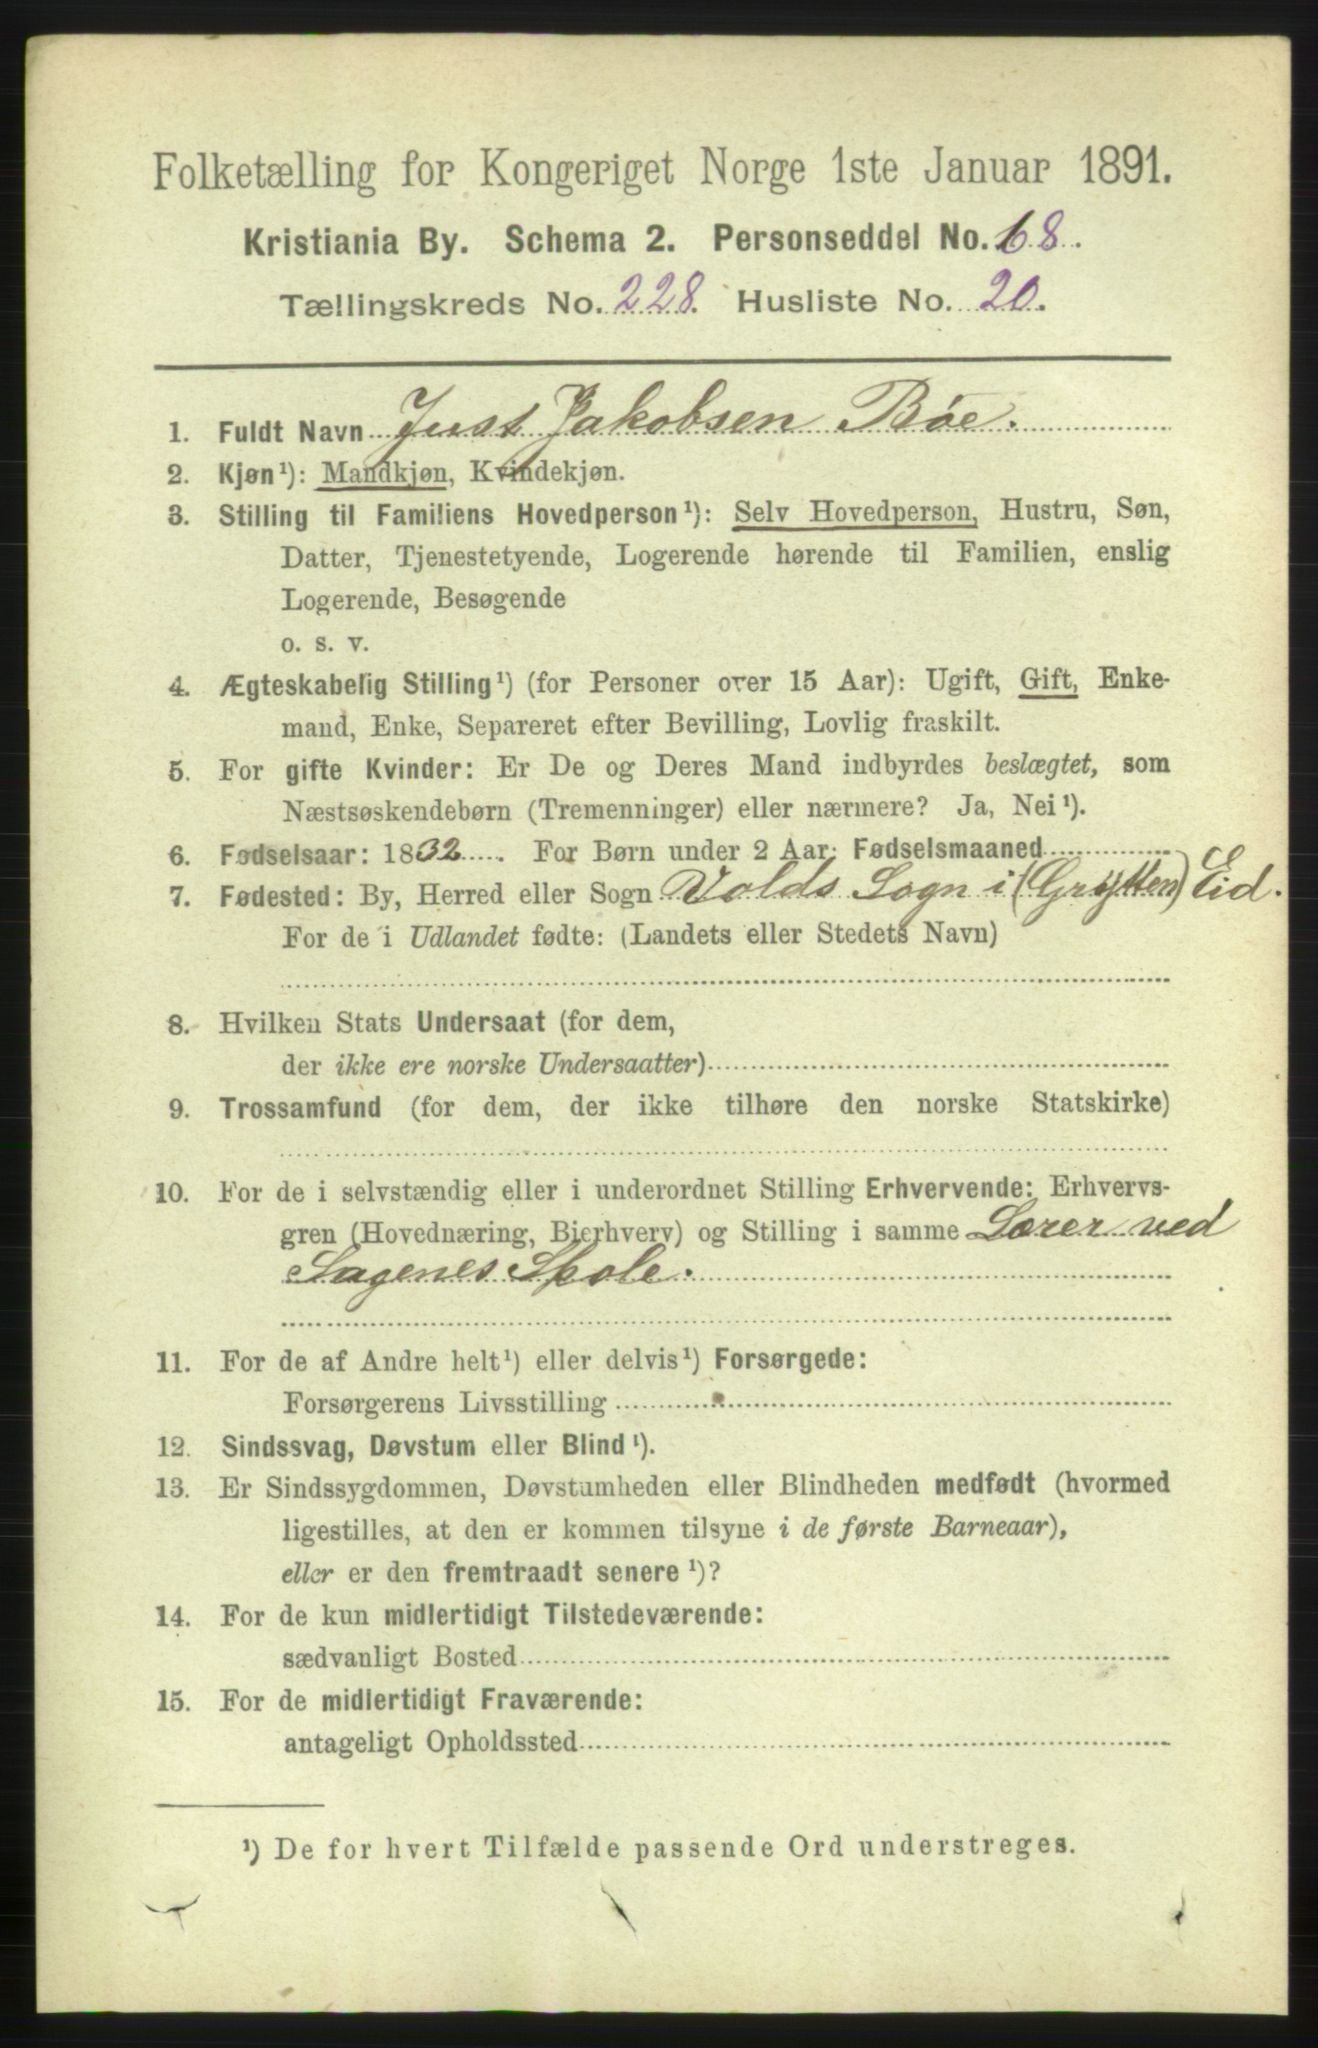 Folketælling for Kongeriget Norge 1ste Januar 1891.
Kristiania By. Schema 2. Personseddel No. 68.
Tællingskreds No. 228. Husliste No. 20.
1. Fuldt Navn Just Jakobsen Bøe.
2. Kjøn¹): Mandkjøn, Kvindekjøn.
3. Stilling til Familiens Hovedperson¹): Selv Hovedperson, Hustru, Søn,
Datter, Tjenestetyende, Logerende hørende til Familien, enslig
Logerende, Besøgende
o. s. v.
4. Ægteskabelig Stilling¹) (for Personer over 15 Aar): Ugift, Gift, Enke-
mand, Enke, Separeret efter Bevilling, Lovlig fraskilt.
5. For gifte Kvinder: Er De og Deres Mand indbyrdes beslægtet, som
Næstsøskendebørn (Tremenninger) eller nærmere? Ja, Nei¹).
6. Fødselsaar: 1832. For Børn under 2 Aar: Fødselsmaaned
7. Fødested: By, Herred eller Sogn Volds Sogn i (Grytten) Eid.
For de i Udlandet fødte: (Landets eller Stedets Navn)
8. Hvilken Stats Undersaat (for dem,
der ikke ere norske Undersaatter)
9. Trossamfund (for dem, der ikke tilhøre den norske Statskirke)
10. For de i selvstændig eller i underordnet Stilling Erhvervende: Erhvervs-
gren (Hovednæring, Bierhverv) og Stilling i samme Lærer ved
Sagenes Skole.
11. For de af Andre helt¹) eller delvis¹) Forsørgede:
Forsørgerens Livsstilling
12. Sindssvag, Døvstum eller Blind¹).
13. Er Sindssygdommen, Døvstumheden eller Blindheden medfødt (hvormed
ligestilles, at den er kommen tilsyne i de første Barneaar),
eller er den fremtraadt senere¹)?
14. For de kun midlertidigt Tilstedeværende:
sædvanligt Bosted
15. For de midlertidigt Fraværende:
antageligt Opholdssted
¹) De for hvert Tilfælde passende Ord understreges.